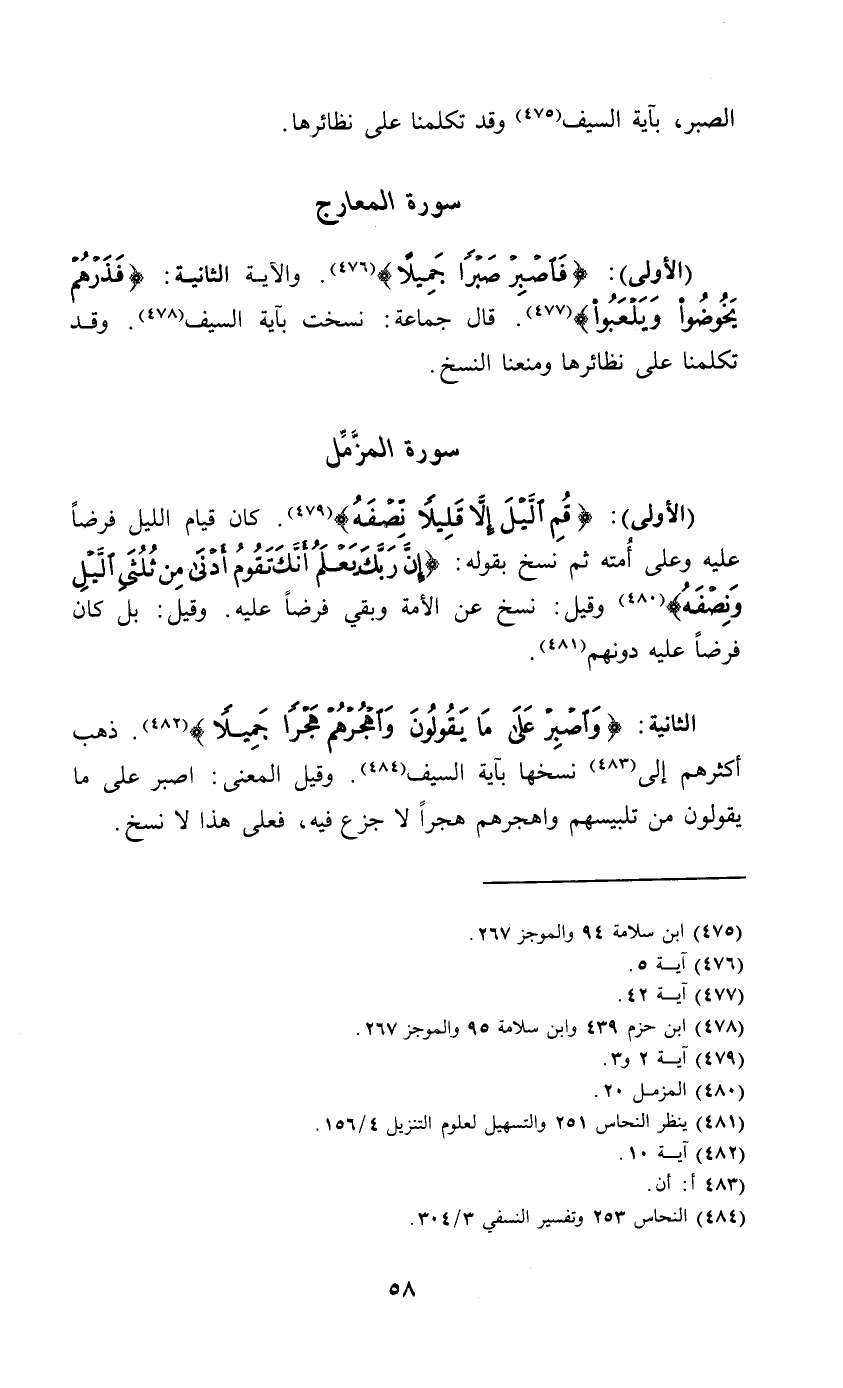 الصبر، بآية السيف(٤٧٥) وقد تكلمنا على نظائرها.
سورة المعارج
(الأولى): ﴿فَاَصْبِرْ صَبْرًا جَمِيلًا﴾(٤٧٦). والآية الثانية: ﴿فَذَرْهُمْ
يَخُوضُواْ وَيَلْعَبُواْ﴾(٤٧٧). قال جماعة: نسخت بآية السيف(٤٧٨). وقد
تكلمنا على نظائرها ومنعنا النسخ.
سورة المزَّمِّل
(الأولى): ﴿قُمِ ٱلَّيْلَ إِلَّا قَلِيلًا نِّصْفَهُ﴾(٤٧٩). كان قيام الليل فرضاً
عليه وعلى أُمته ثم نسخ بقوله: ﴿إِنَّ رَبَّكَ يَعْلَمُ أَنَّكَ تَقُومُ أَدْنَىٰ مِن ثُلُثَيِ ٱلَّيْلِ
وَنِصْفَهُ﴾(٤٨٠) وقيل: نسخ عن الأمة وبقي فرضاً عليه. وقيل: بل كان
فرضاً عليه دونهم(٤٨١).
الثانية: ﴿وَٱصْبِرْ عَلَىٰ مَا يَقُولُونَ وَٱهْجُرْهُمْ هَجْرًا جَمِيلًا﴾(٤٨٢). ذهب
أكثرهم إلى(٤٨٣) نسخها بآية السيف(٤٨٤). وقيل المعنى: اصبر على ما
يقولون من تلبيسهم واهجرهم هجراً لا جزع فيه، فعلى هذا لا نسخ.
(٤٧٥) ابن سلامة ٩٤ والموجز ٢٦٧.
(٤٧٦) آية ٥.
(٤٧٧) آية ٤٢.
(٤٧٨) ابن حزم ٤٣٩ وابن سلامة ٩٥ والموجز ٢٦٧.
(٤٧٩) آية ٢ و٣.
(٤٨٠) المزمل ٢٠.
(٤٨١) ينظر النحاس ٢٥١ والتسهيل لعلوم التنزيل ١٥٦/٤.
(٤٨٢) آية ١٠.
(٤٨٣ أ: أن.
(٤٨٤) النحاس ٢٥٣ وتفسير النسفي ٣٠٤/٣.
٥٨